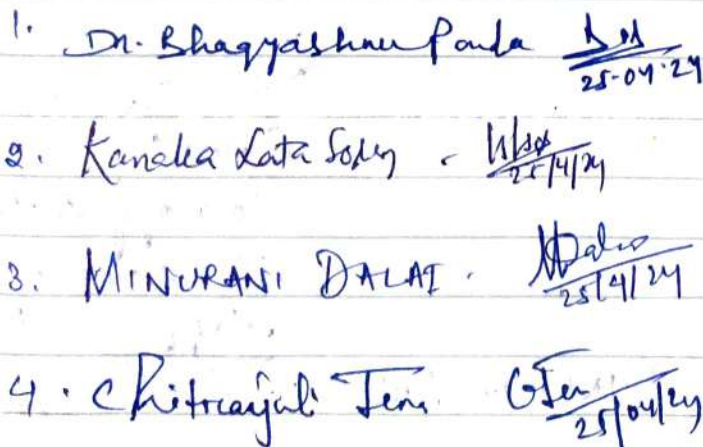 1. Dr. Bhagyashree Panda 25-04-24
2. Kanaka Lata Soren 25/4/24
3. MINURANI DALAI. 25/4/24
4. Chitranjali Jena 25/04/24